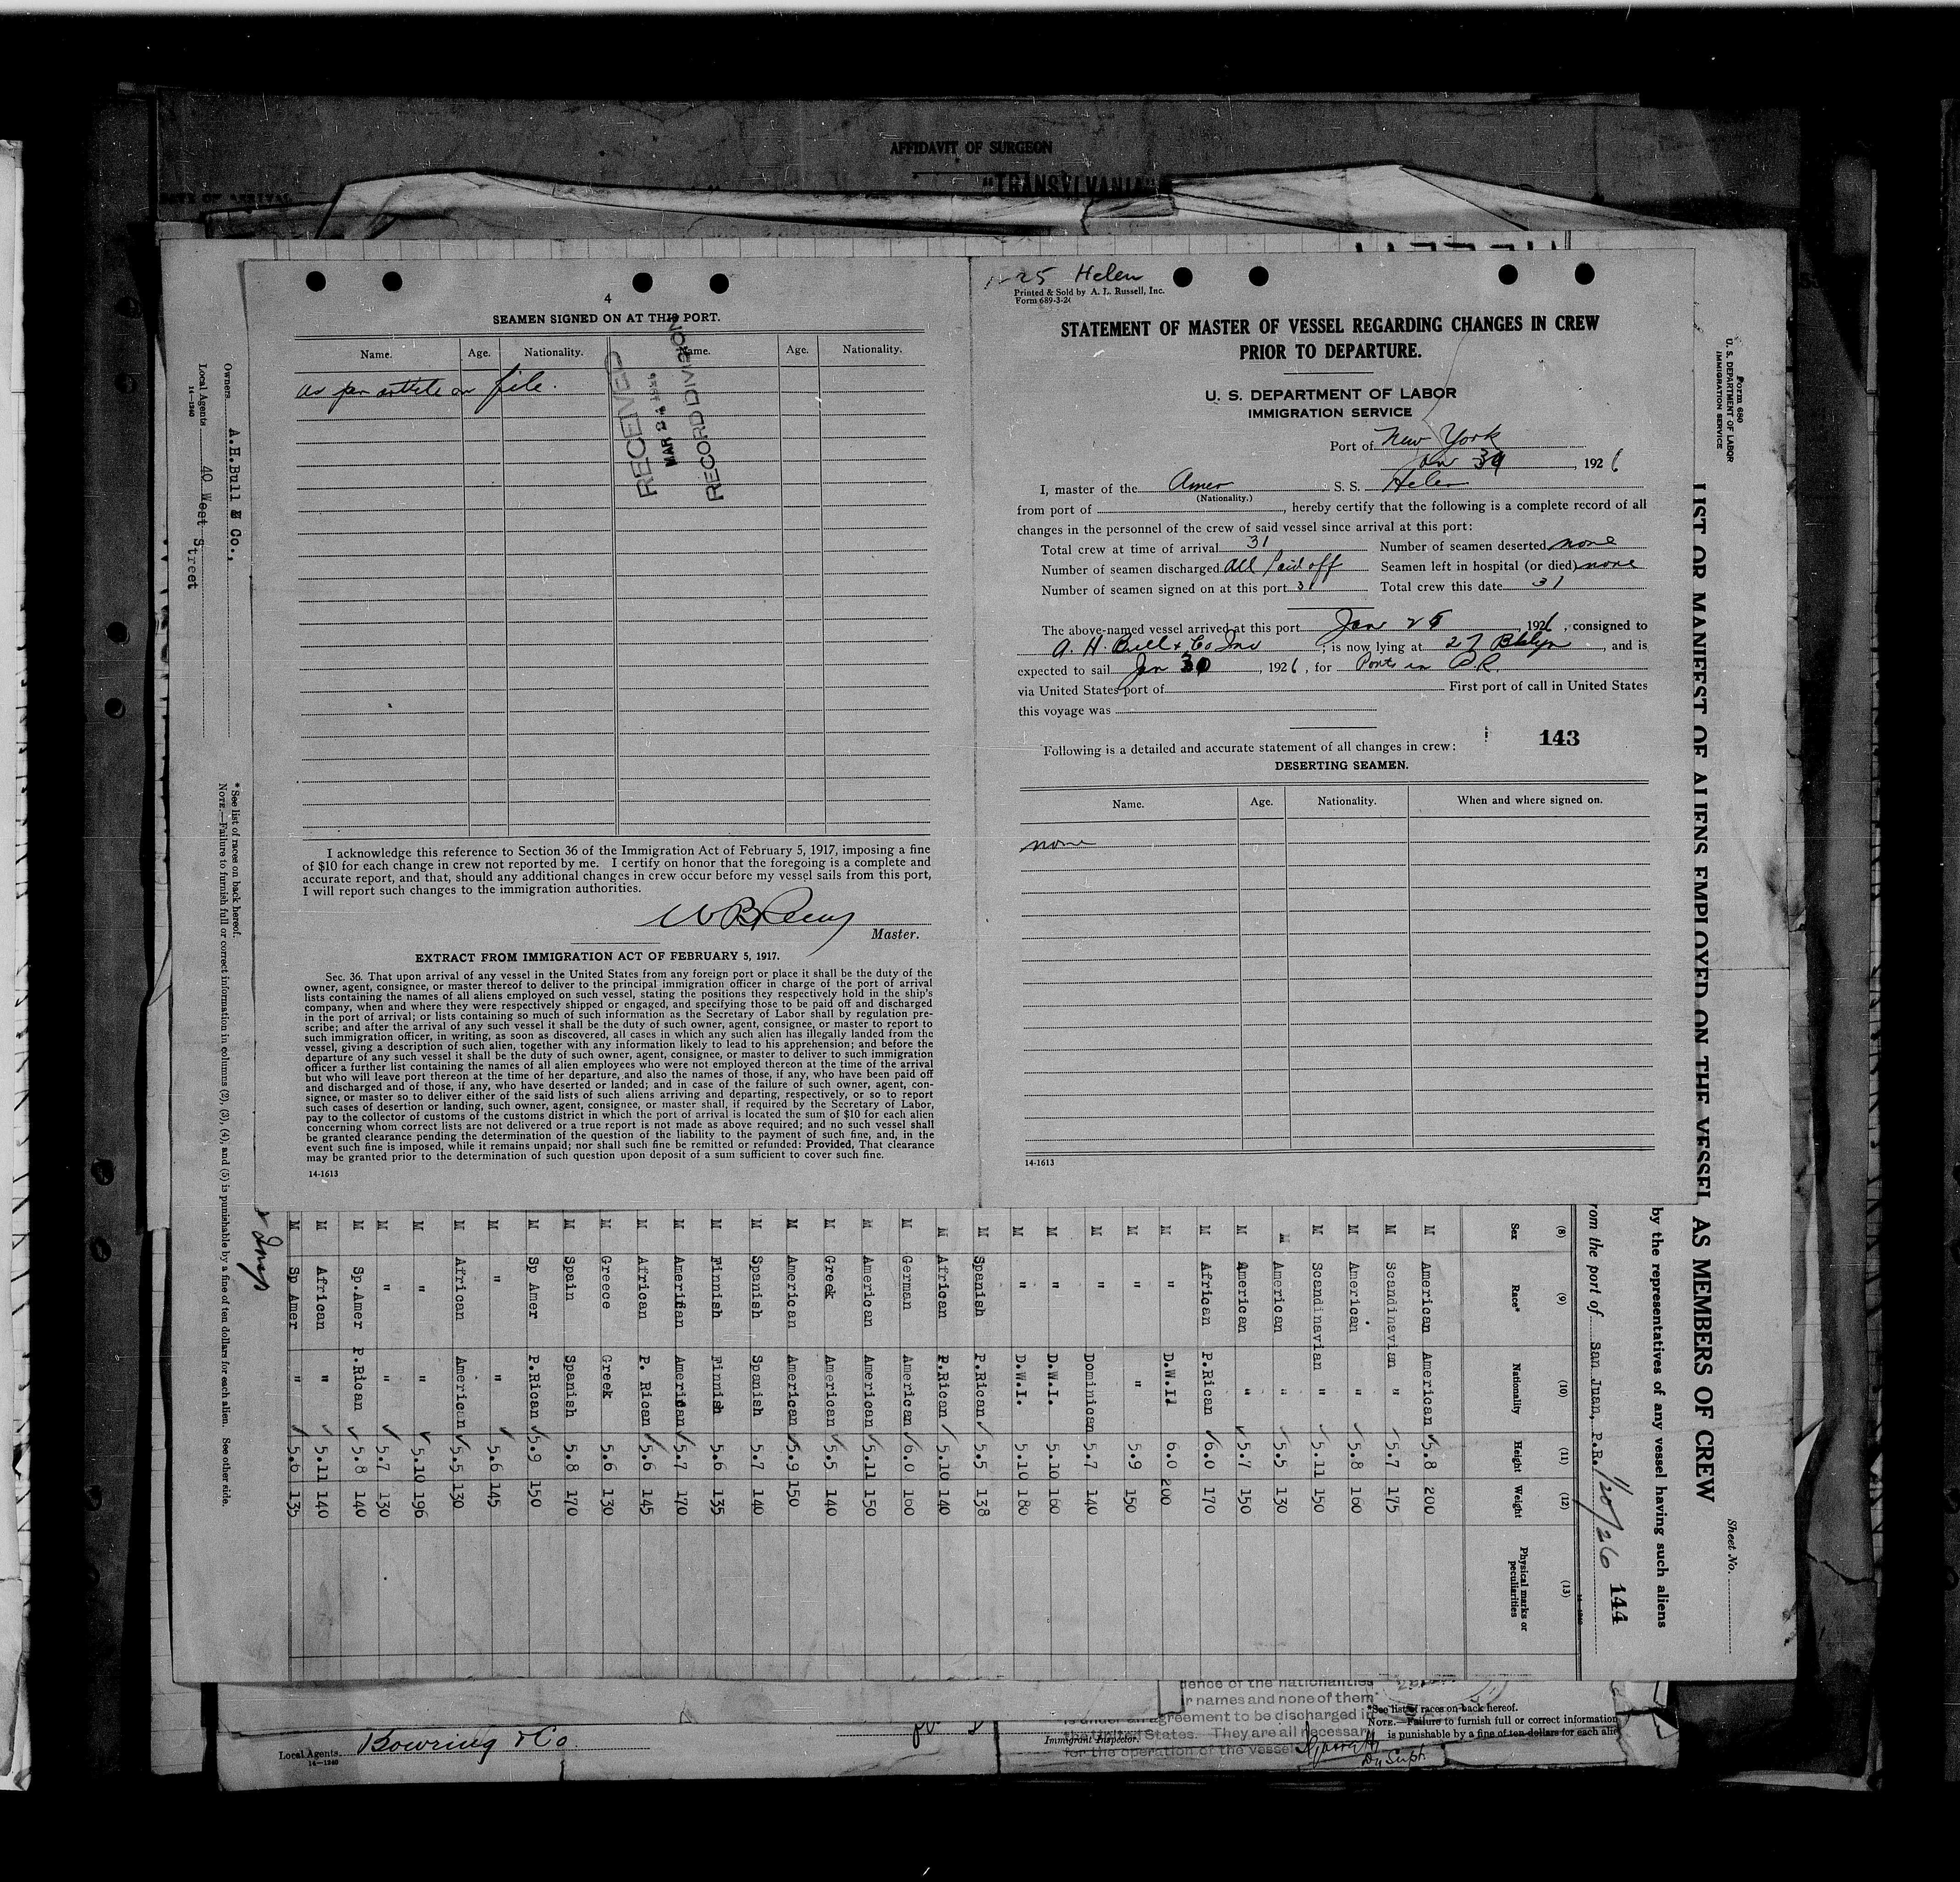 AFFIDAVIT OF SURGEON
"TRANSYLVANIA"
4
SEAMEN SIGNED ON AT THIS PORT.
Name. Age. Nationality. Name. Age. Nationality.
as per article on file.
RECEIVED
MAR 24 1926
RECORD DIVISION
I acknowledge this reference to Section 36 of the Immigration Act of February 5, 1917, imposing a fine
of $10 for each change in crew not reported by me. I certify on honor that the foregoing is a complete and
accurate report, and that, should any additional changes in crew occur before my vessel sails from this port,
I will report such changes to the immigration authorities.
Master.
EXTRACT FROM IMMIGRATION ACT OF FEBRUARY 5, 1917.
Sec. 36. That upon arrival of any vessel in the United States from any foreign port or place it shall be the duty of the
owner, agent, consignee, or master thereof to deliver to the principal immigration officer in charge of the port of arrival
lists containing the names of all aliens employed on such vessel, stating the positions they respectively hold in the ship's
company, when and where they were respectively shipped or engaged, and specifying those to be paid off and discharged
in the port of arrival; or lists containing so much of such information as the Secretary of Labor shall by regulation pre-
scribe; and after the arrival of any such vessel it shall be the duty of such owner, agent, consignee, or master to report to
such immigration officer, in writing, as soon as discovered, all cases in which any such alien has illegally landed from the
vessel, giving a description of such alien, together with any information likely to lead to his apprehension; and before the
departure of any such vessel it shall be the duty of such owner, agent, consignee, or master to deliver to such immigration
officer a further list containing the names of all alien employees who were not employed thereon at the time of the arrival
but who will leave port thereon at the time of her departure, and also the names of those, if any, who have been paid off
and discharged and of those, if any, who have deserted or landed; and in case of the failure of such owner, agent, con-
signee, or master so to deliver either of the said lists of such aliens arriving and departing, respectively, or so to report
such cases of desertion or landing, such owner, agent, consignee, or master shall, if required by the Secretary of Labor,
pay to the collector of customs of the customs district in which the port of arrival is located the sum of $10 for each alien
concerning whom correct lists are not delivered or a true report is not made as above required; and no such vessel shall
be granted clearance pending the determination of the question of the liability to the payment of such fine, and, in the
event such fine is imposed, while it remains unpaid; nor shall such fine be remitted or refunded: Provided, That clearance
may be granted prior to the determination of such question upon deposit of a sum sufficient to cover such fine.
14-1613
25 Helen
Printed & Sold by A. L. Russell, Inc.
Form 689-3-24
STATEMENT OF MASTER OF VESSEL REGARDING CHANGES IN CREW
PRIOR TO DEPARTURE.
U. S. DEPARTMENT OF LABOR
IMMIGRATION SERVICE
Port of New York
Jan 30, 1926
I, master of the Amer S. S. Helen
(Nationality.)
from port of , hereby certify that the following is a complete record of all
changes in the personnel of the crew of said vessel since arrival at this port:
Total crew at time of arrival 31 Number of seamen deserted none
Number of seamen discharged All Paid off Seamen left in hospital (or died) none
Number of seamen signed on at this port 31 Total crew this date 31
The above-named vessel arrived at this port Jan 25 1926, consigned to
A. H. Bull & Co Inc, is now lying at 27 Bklyn, and is
expected to sail Jan 30, 1926, for Ports in P R
via United States port of First port of call in United States
this voyage was
143
Following is a detailed and accurate statement of all changes in crew:
DESERTING SEAMEN.
Name. Age. Nationality. When and where signed on.
none
14-1613
Form 680
U. S. DEPARTMENT OF LABOR
IMMIGRATION SERVICE
Sheet No.
LIST OR MANIFEST OF ALIENS EMPLOYED ON THE VESSEL AS MEMBERS OF CREW
by the representatives of any vessel having such aliens
rom the port of San Juan, P.R. 1/20/26
144
(8) (9) (10) (11) (12) (13)
Sex Race* Nationality Height Weight Physical marks or peculiarities
M American American 5.8 200
M Scandinavian " 5.7 175
M American " 5.8 160
M Scandinavian " 5.11 150
M American " 5.5 130
M American " 5.7 150
M African P.Rican 6.0 170
M " D.W.I. 6.0 200
M " " 5.9 150
M " Dominican 5.7 140
M " D.W.I. 5.10 160
M " D.W.I. 5.10 180
M Spanish P.Rican 5.5 138
M African P.Rican 5.10 140
M German American 6.0 160
M American American 5.11 150
M Greek American 5.5 140
M American American 5.9 150
M Spanish Spanish 5.7 140
M Finnish Finnish 5.6 135
M American American 5.7 170
M African P. Rican 5.6 145
M Greece Greek 5.6 130
M Spain Spanish 5.8 170
M Sp Amer P.Rican 5.9 150
M " " 5.6 145
M African American 5.5 130
M " " 5.10 196
M " " 5.7 130
M Sp.Amer P.Rican 5.8 140
M African " 5.11 140
M Sp Amer " 5.6 135
*See list of races on back hereof.
NOTE.—Failure to furnish full or correct information in columns (2), (3), (4), and (5) is punishable by a fine of ten dollars for each alien. See other side.
Owners A.H.Bull & Co.,
Local Agents 40 West Street
14-1240
Local Agents Bowring & Co
14-1240
dence of the nationalities
r names and none of them
agreement to be discharged in
the United States. They are all necessary
for the operation of the vessel
Immigrant Inspector.
*See list of races on back hereof.
NOTE.—Failure to furnish full or correct information
is punishable by a fine of ten dollars for each alie